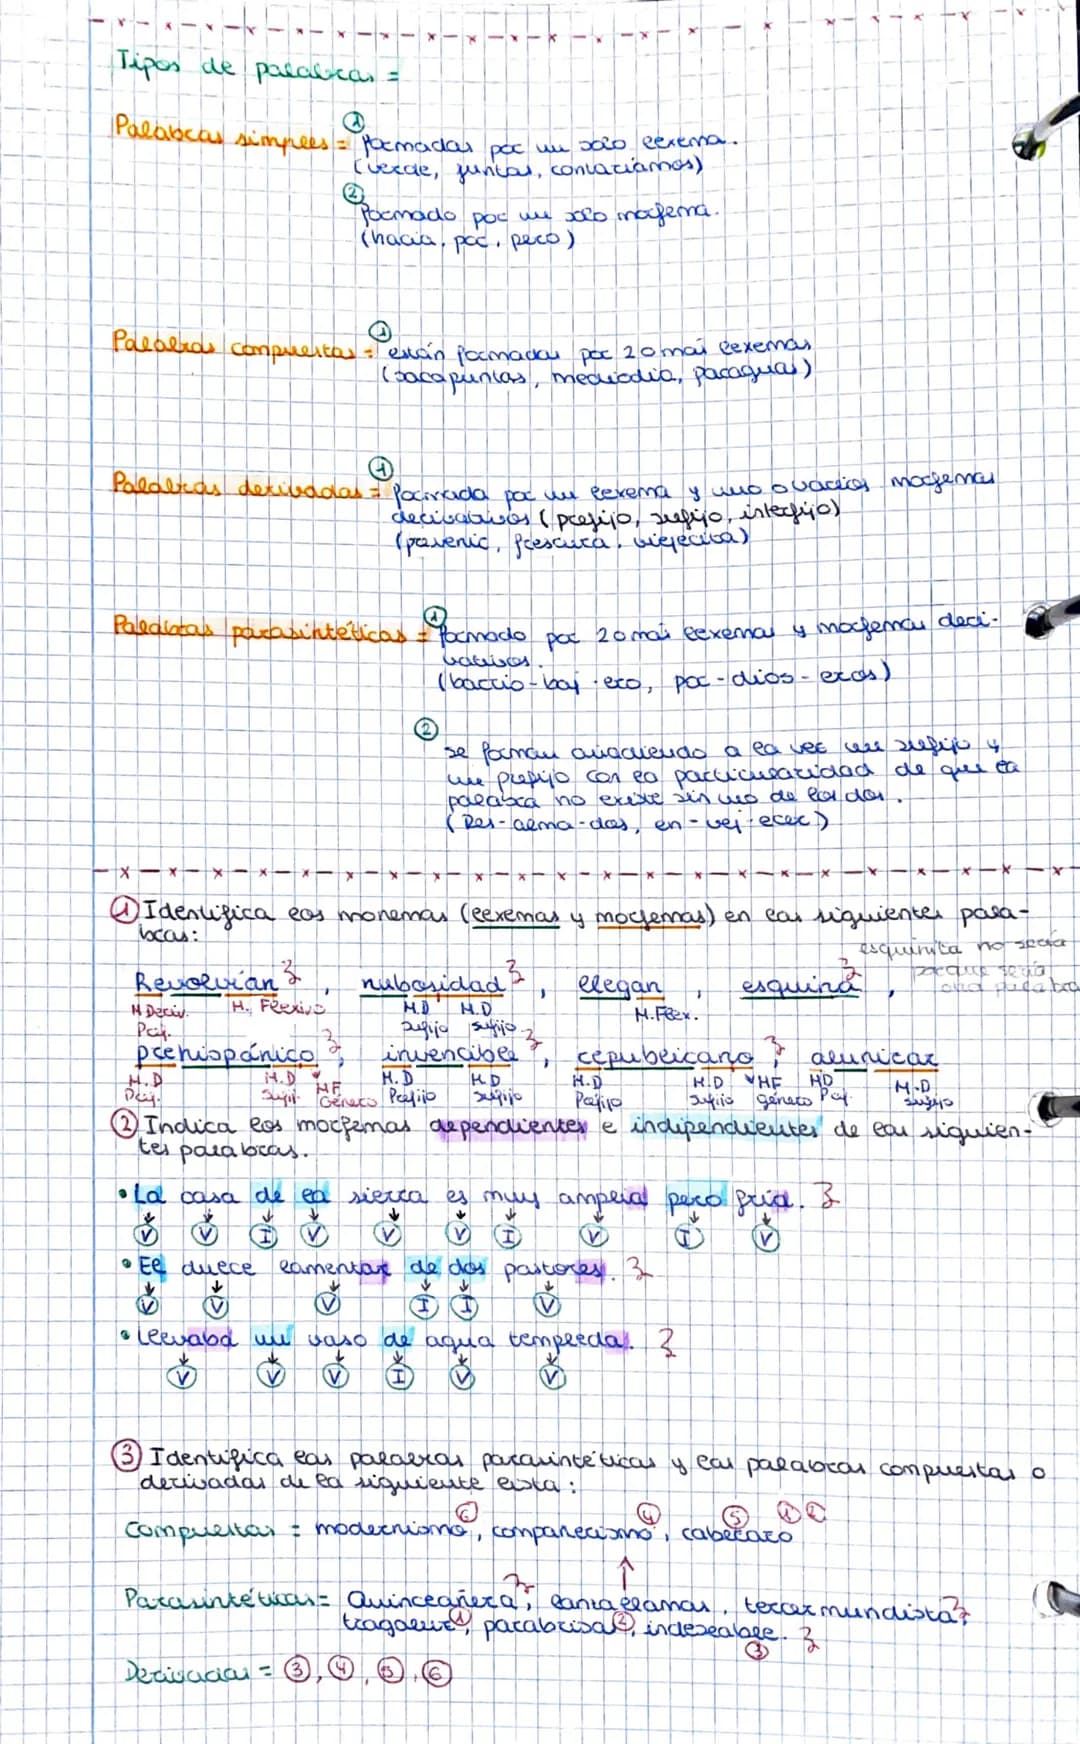 Tipos de palabras =
Palabras simples = ① formadas por un solo lexema.
(verde, juntas, contaríamos)
②
formado por un solo mofema.
(hacia, por, pero)
Palabras compuestas = ① están formadas por 2 o mas lexemas
(sacapuntas, mediodia, paraguas)
Palabras derivadas = ① formada por un lexema y uno o varios morfemas
derivativos (prefijo, sufijo, interfijo)
(, frescura, viejecita)
Palabras parasintéticas = ① formado por 2 o mas lexemas y morfemas deri-
vativos.
(barrio-baj-ero, por-dios-eros)
②
se forman añadiendo a la vez un sufijo y
un prefijo con la particularidad de que la
palabra no existe sin uno de los dos.
(Des-alma-das, en-vej-ecer)
① Identifica los monemas (lexemas y morfemas) en las siguientes pala-
bras:
esquinita no sería
porque sería
otra palabra
Revolvían, nubosidad, elegan, esquina,
M Deriv. M. Flexivo M.D M.D M.Flex.
Pref. sufijo sufijo
prehispánico, invencible, republicano, alunizar
M.D M.D MF M.D M.D M.D M.D MF MD M.D
Pref. Sufij. Género Prefijo sufijo Prefijo sufijo género Pref. sufijo
② Indica los morfemas dependientes e indipendientes de las siguien-
tes palabras.
• La casa de la sierra es muy amplia pero fria.
V V I V V V I V I V
• El dulce lamentar de dos pastores.
V V V I I V
• llevaba un vaso de agua templada.
V V V I V V
③ Identifica las palabras parasintéticas y las palabras compuestas o
derivadas de la siguiente lista:
⑥ ④ ⑤ ① ②
Compuestas = modernismo, , cabezazo
Parasintéticas = Quinceañera, , tercermundista,
tragaluz ①, parabrisas ②, indeseable.
③
Derivadas = ③, ④, ⑤, ⑥